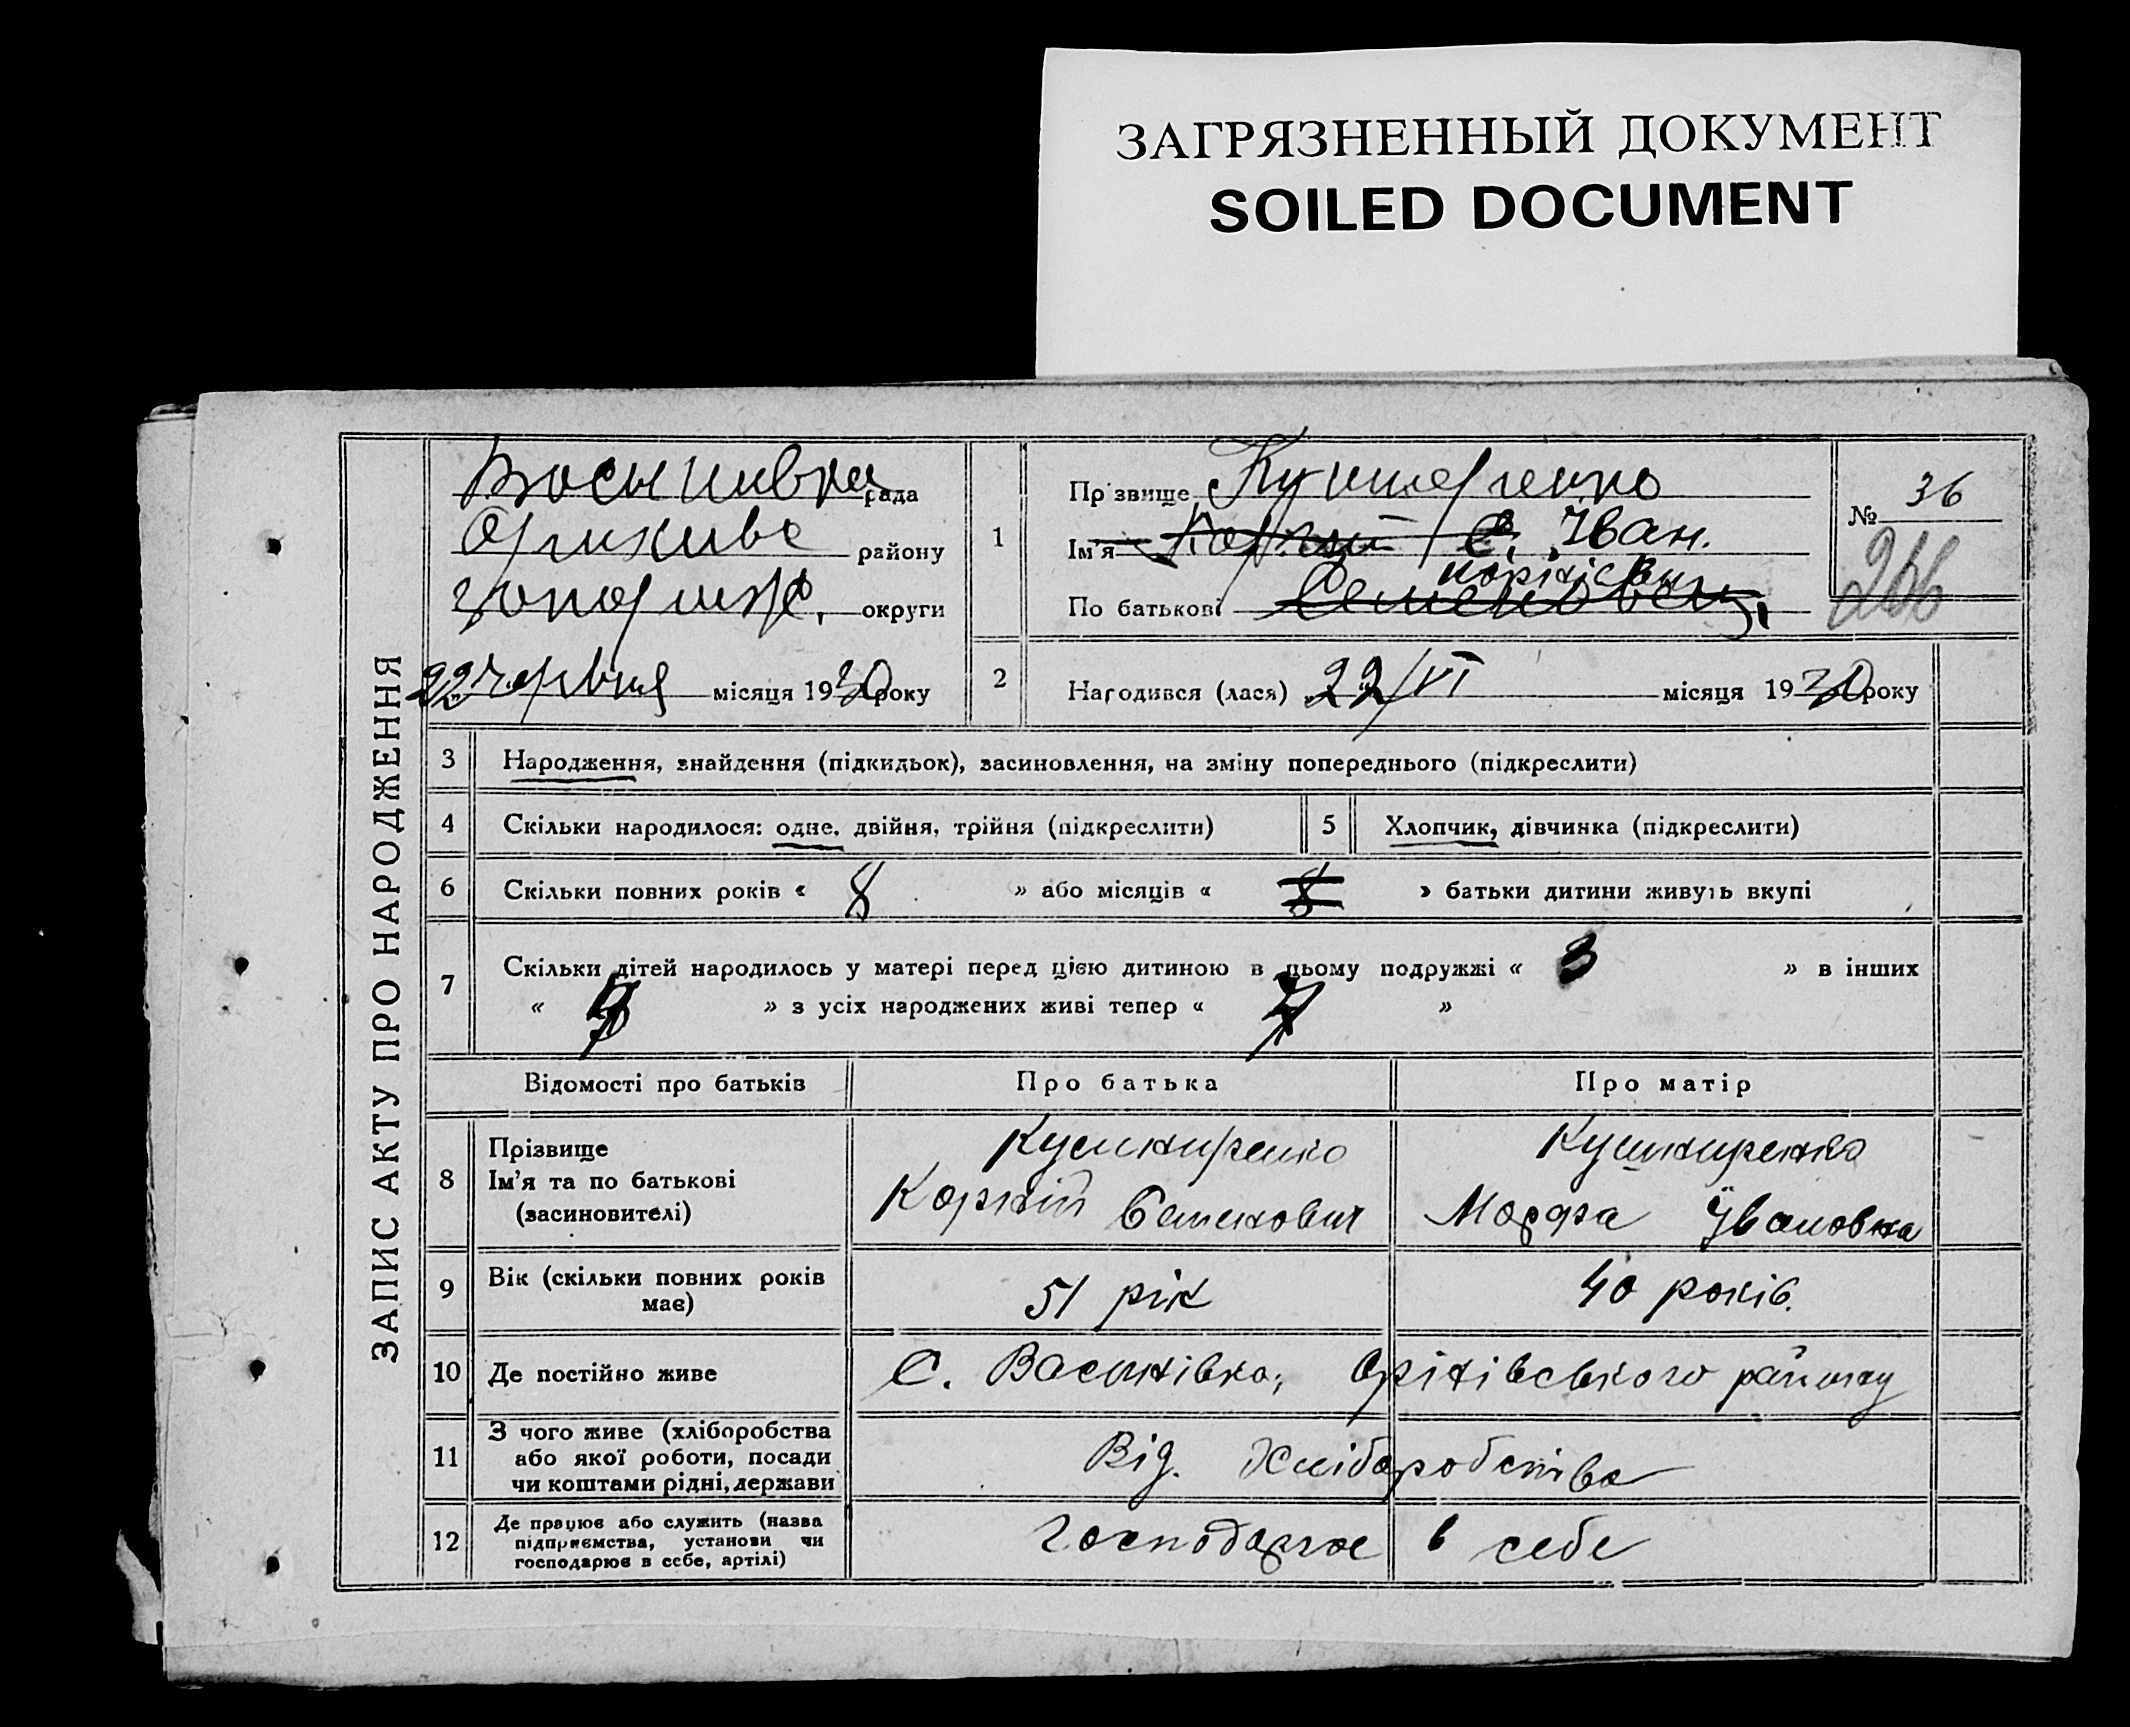 ЗАГРЯЗНЕННЫЙ ДОКУМЕНТ
SOILED DOCUMENT
ЗАПИС АКТУ ПРО НАРОДЖЕННЯ
рада
району
округи
22 червня місяця 1930 року
1
Прізвище
Ім'я Іван.
По батькові Семенович
№ 36
266
2
Народився (лася) 22/VI місяця 1930 року
3 Народження, знайдення (підкидьок), засиновлення, на зміну попереднього (підкреслити)
4 Скільки народилося: одне, двійня, трійня (підкреслити)
5 Хлопчик, дівчинка (підкреслити)
6 Скільки повних років « 8 » або місяців « 8 » батьки дитини живуть вкупі
7 Скільки дітей народилось у матері перед цією дитиною в цьому подружжі « 3 » в інших
« » з усіх народжених живі тепер « »
Відомості про батьків Про батька Про матір
8 Прізвище
Ім'я та по батькові
(засиновителі)
Кушниренко
Корній Семенович
Кушниренко
Марфа Івановна
9 Вік (скільки повних років
має)
51 рік
40 років.
10 Де постійно живе
С. Василівка, Оріхівського району
11 З чого живе (хліборобства
або якої роботи, посади
чи коштами рідні, держави
Від. Хліборобства
12 Де працює або служить (назва
підприємства, установи чи
господарює в себе, артілі)
Господарює в себе